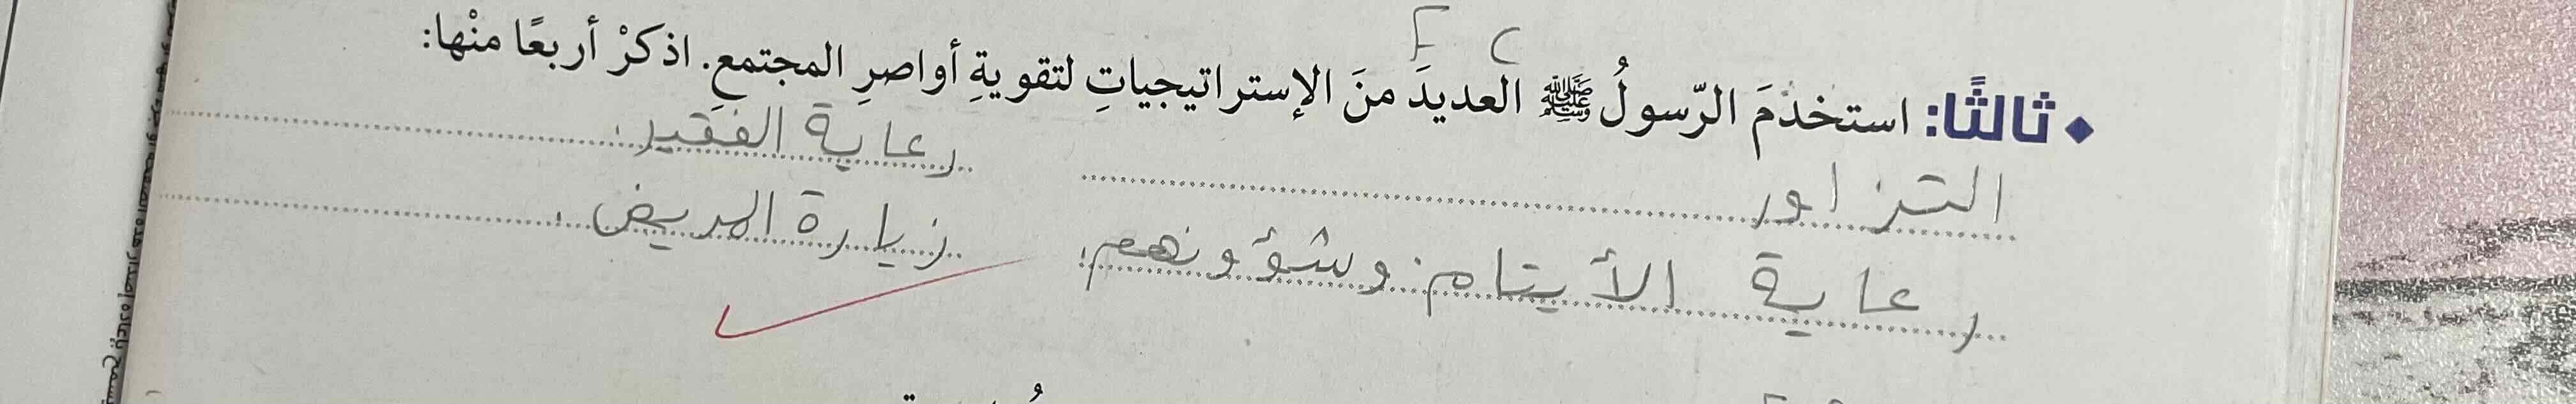 ◆ ثالثًا: استخدَمَ الرّسولُ ﷺ العديدَ منَ الإستراتيجياتِ لتقويةِ أواصرِ المجتمعِ. اذكرْ أربعًا منْها:
التزاور
رعاية الفقير.
رعاية الأيتام وشؤونهم.
زيارة المريض.